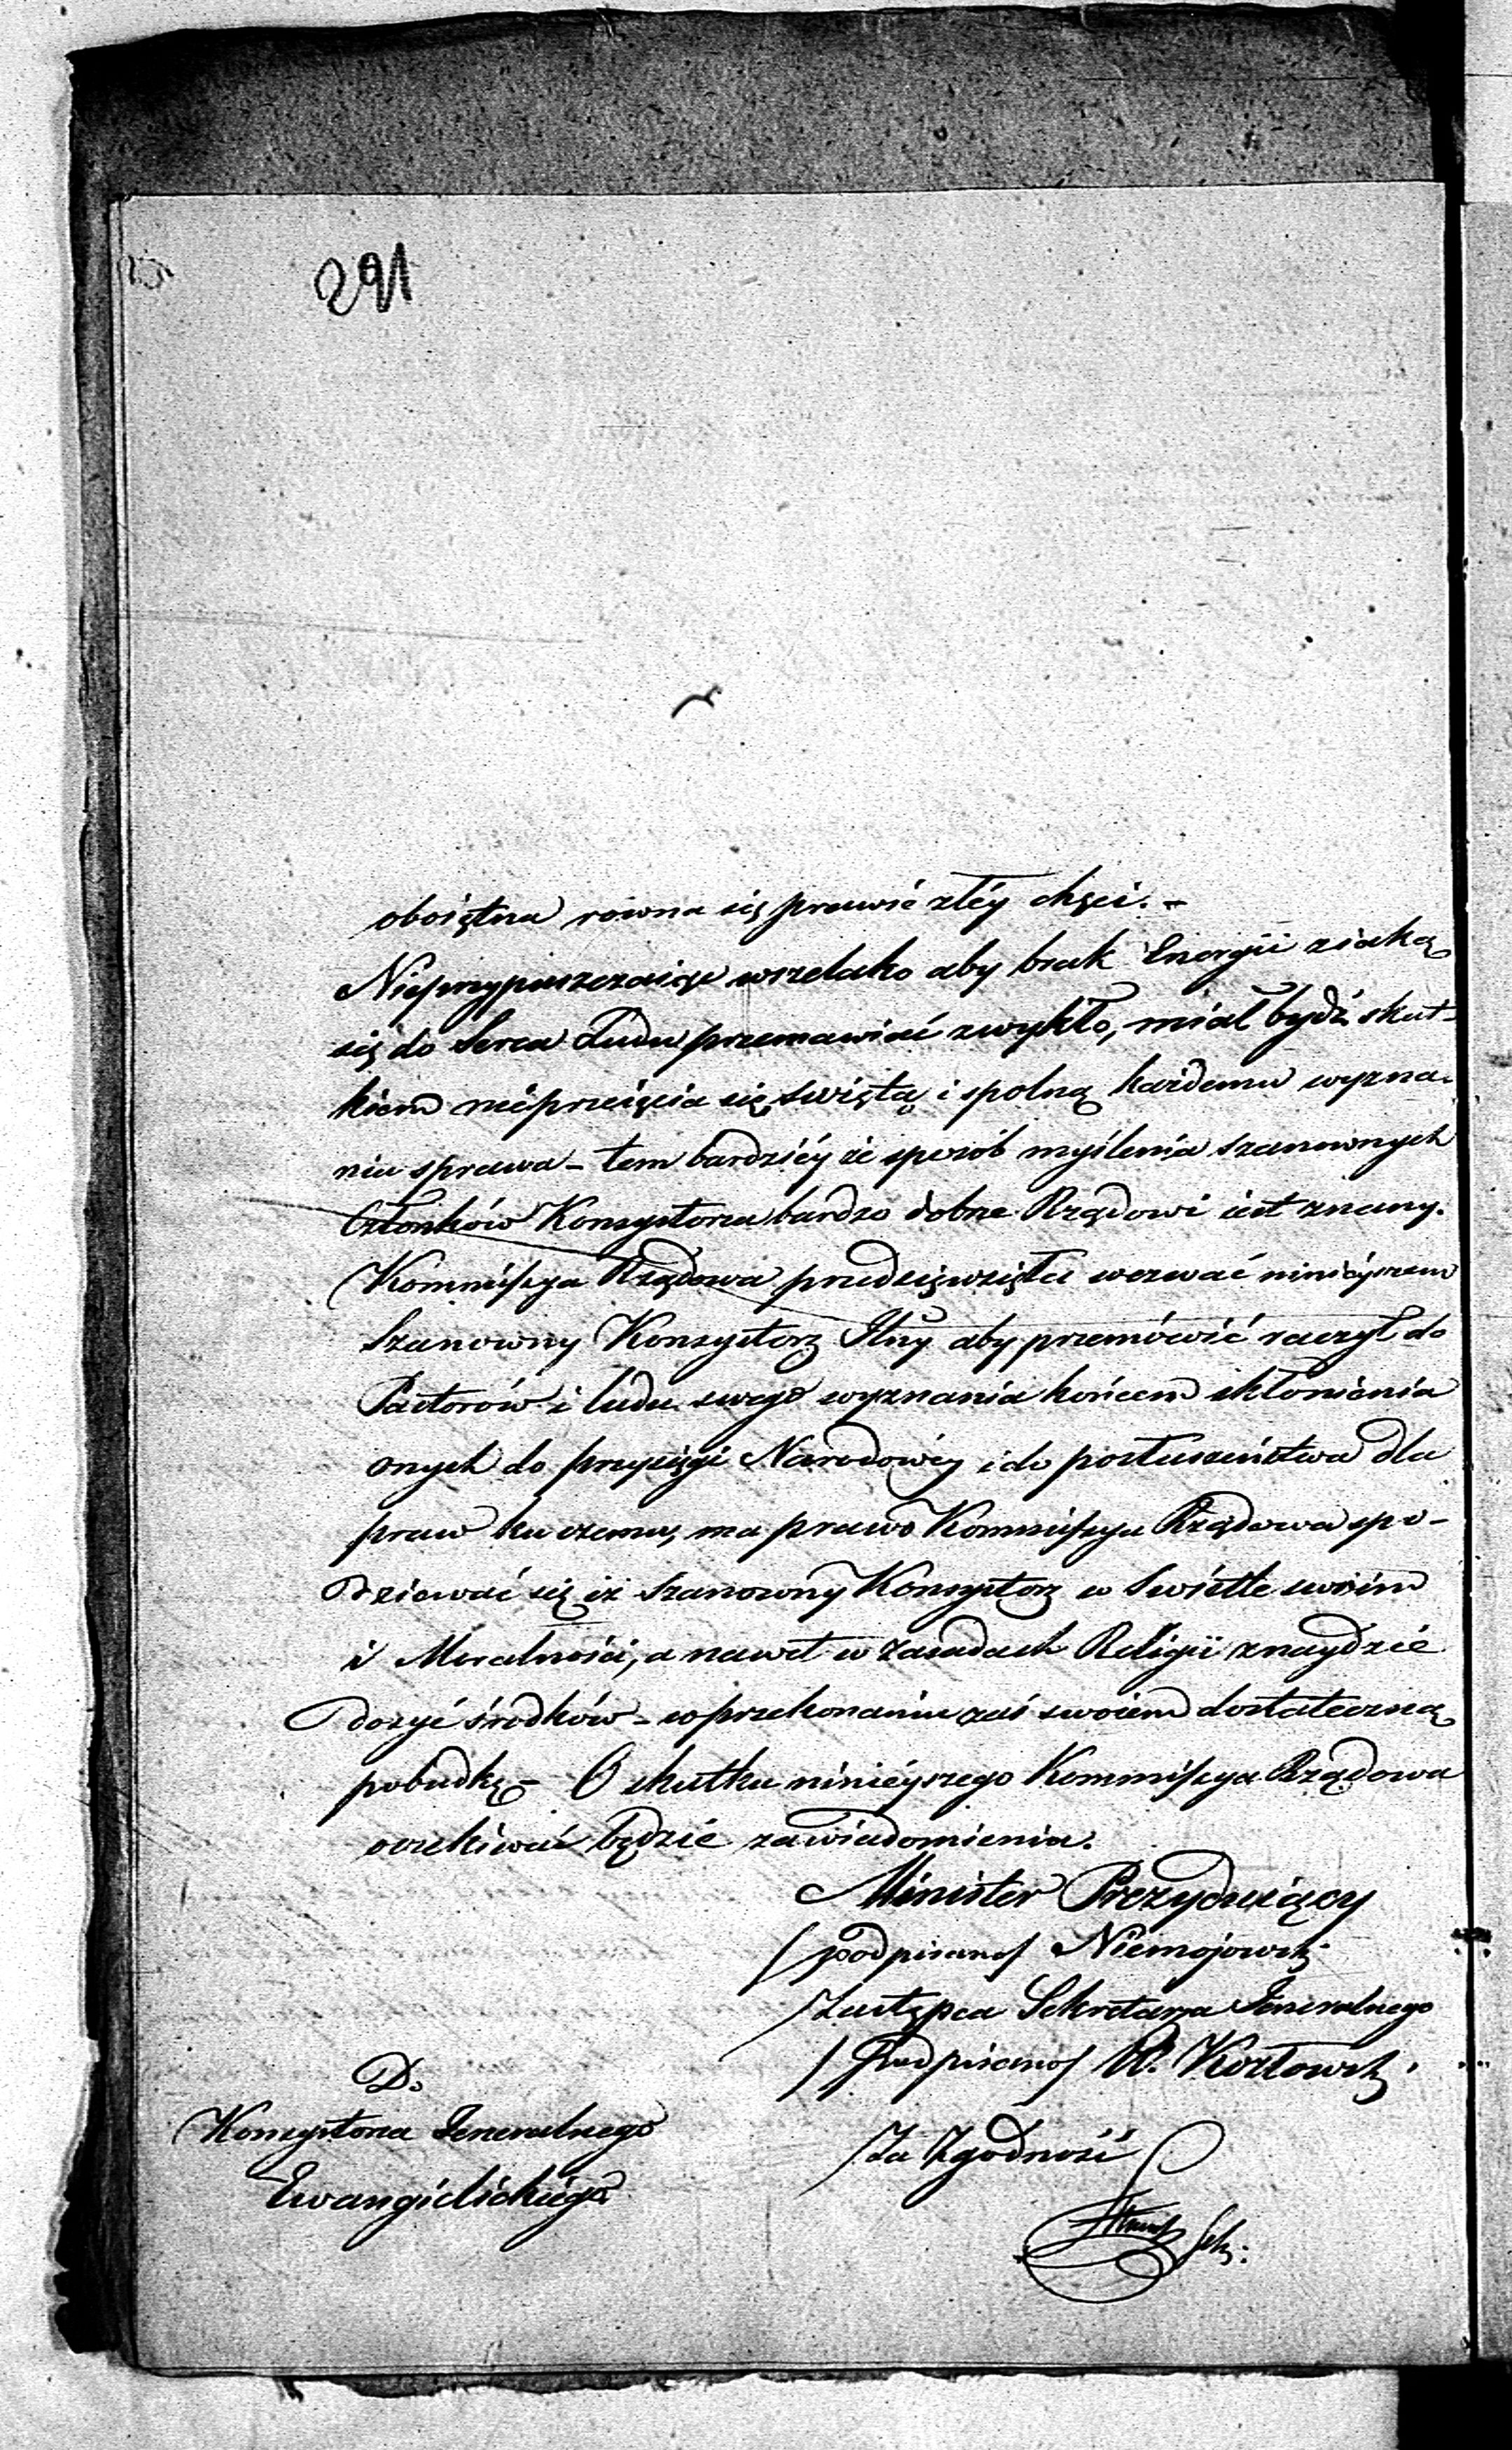 291
obojętna rowna się prawie złéy chęci. -
Nieprzypuszczaiąc wszelako aby brak Energii z iaką
się do Serca Ludu przemawiać zwykło, miał bydź skut-
kiem nieprzeięcia się swiętą i spolną każdemu wyzna-
niu sprawa - tem bardziéy że sposób myślenia szanownych
Członków Konsystorza bardzo dobrze Rządowi iest znany.
Kommissya Rządowa przedsięwzięła wezwać ninieyszem
Szanowny Konsystorz Jlny aby przemówić raczył do
Pastorów i ludu swego wyznania końcem skłonienia
onych do przysięgi Narodowéy i do posłuszeństwa dla
praw ku czemu, ma prawo Kommissya Rządowa spo-
dziewać się iż Szanowny Konsystorz w Swietle swoim
i Moralności, a nawet w zasadach Religii znaydzie
dosyć środków - w przekonaniu zaś swoiem dostateczną
pobudkę - O skutku ninieyszego Kommissya Rządowa
oczekiwać będzie zawiadomienia.
Minister Prezyduiący
/podpisano/ Niemojowski
Zastępca Sekretarza Jeneralnego
/podpisano/ R. Kozłowski.
Do
Konsystorza Jeneralnego
Ewangielickiego
Za Zgodność
Sek: